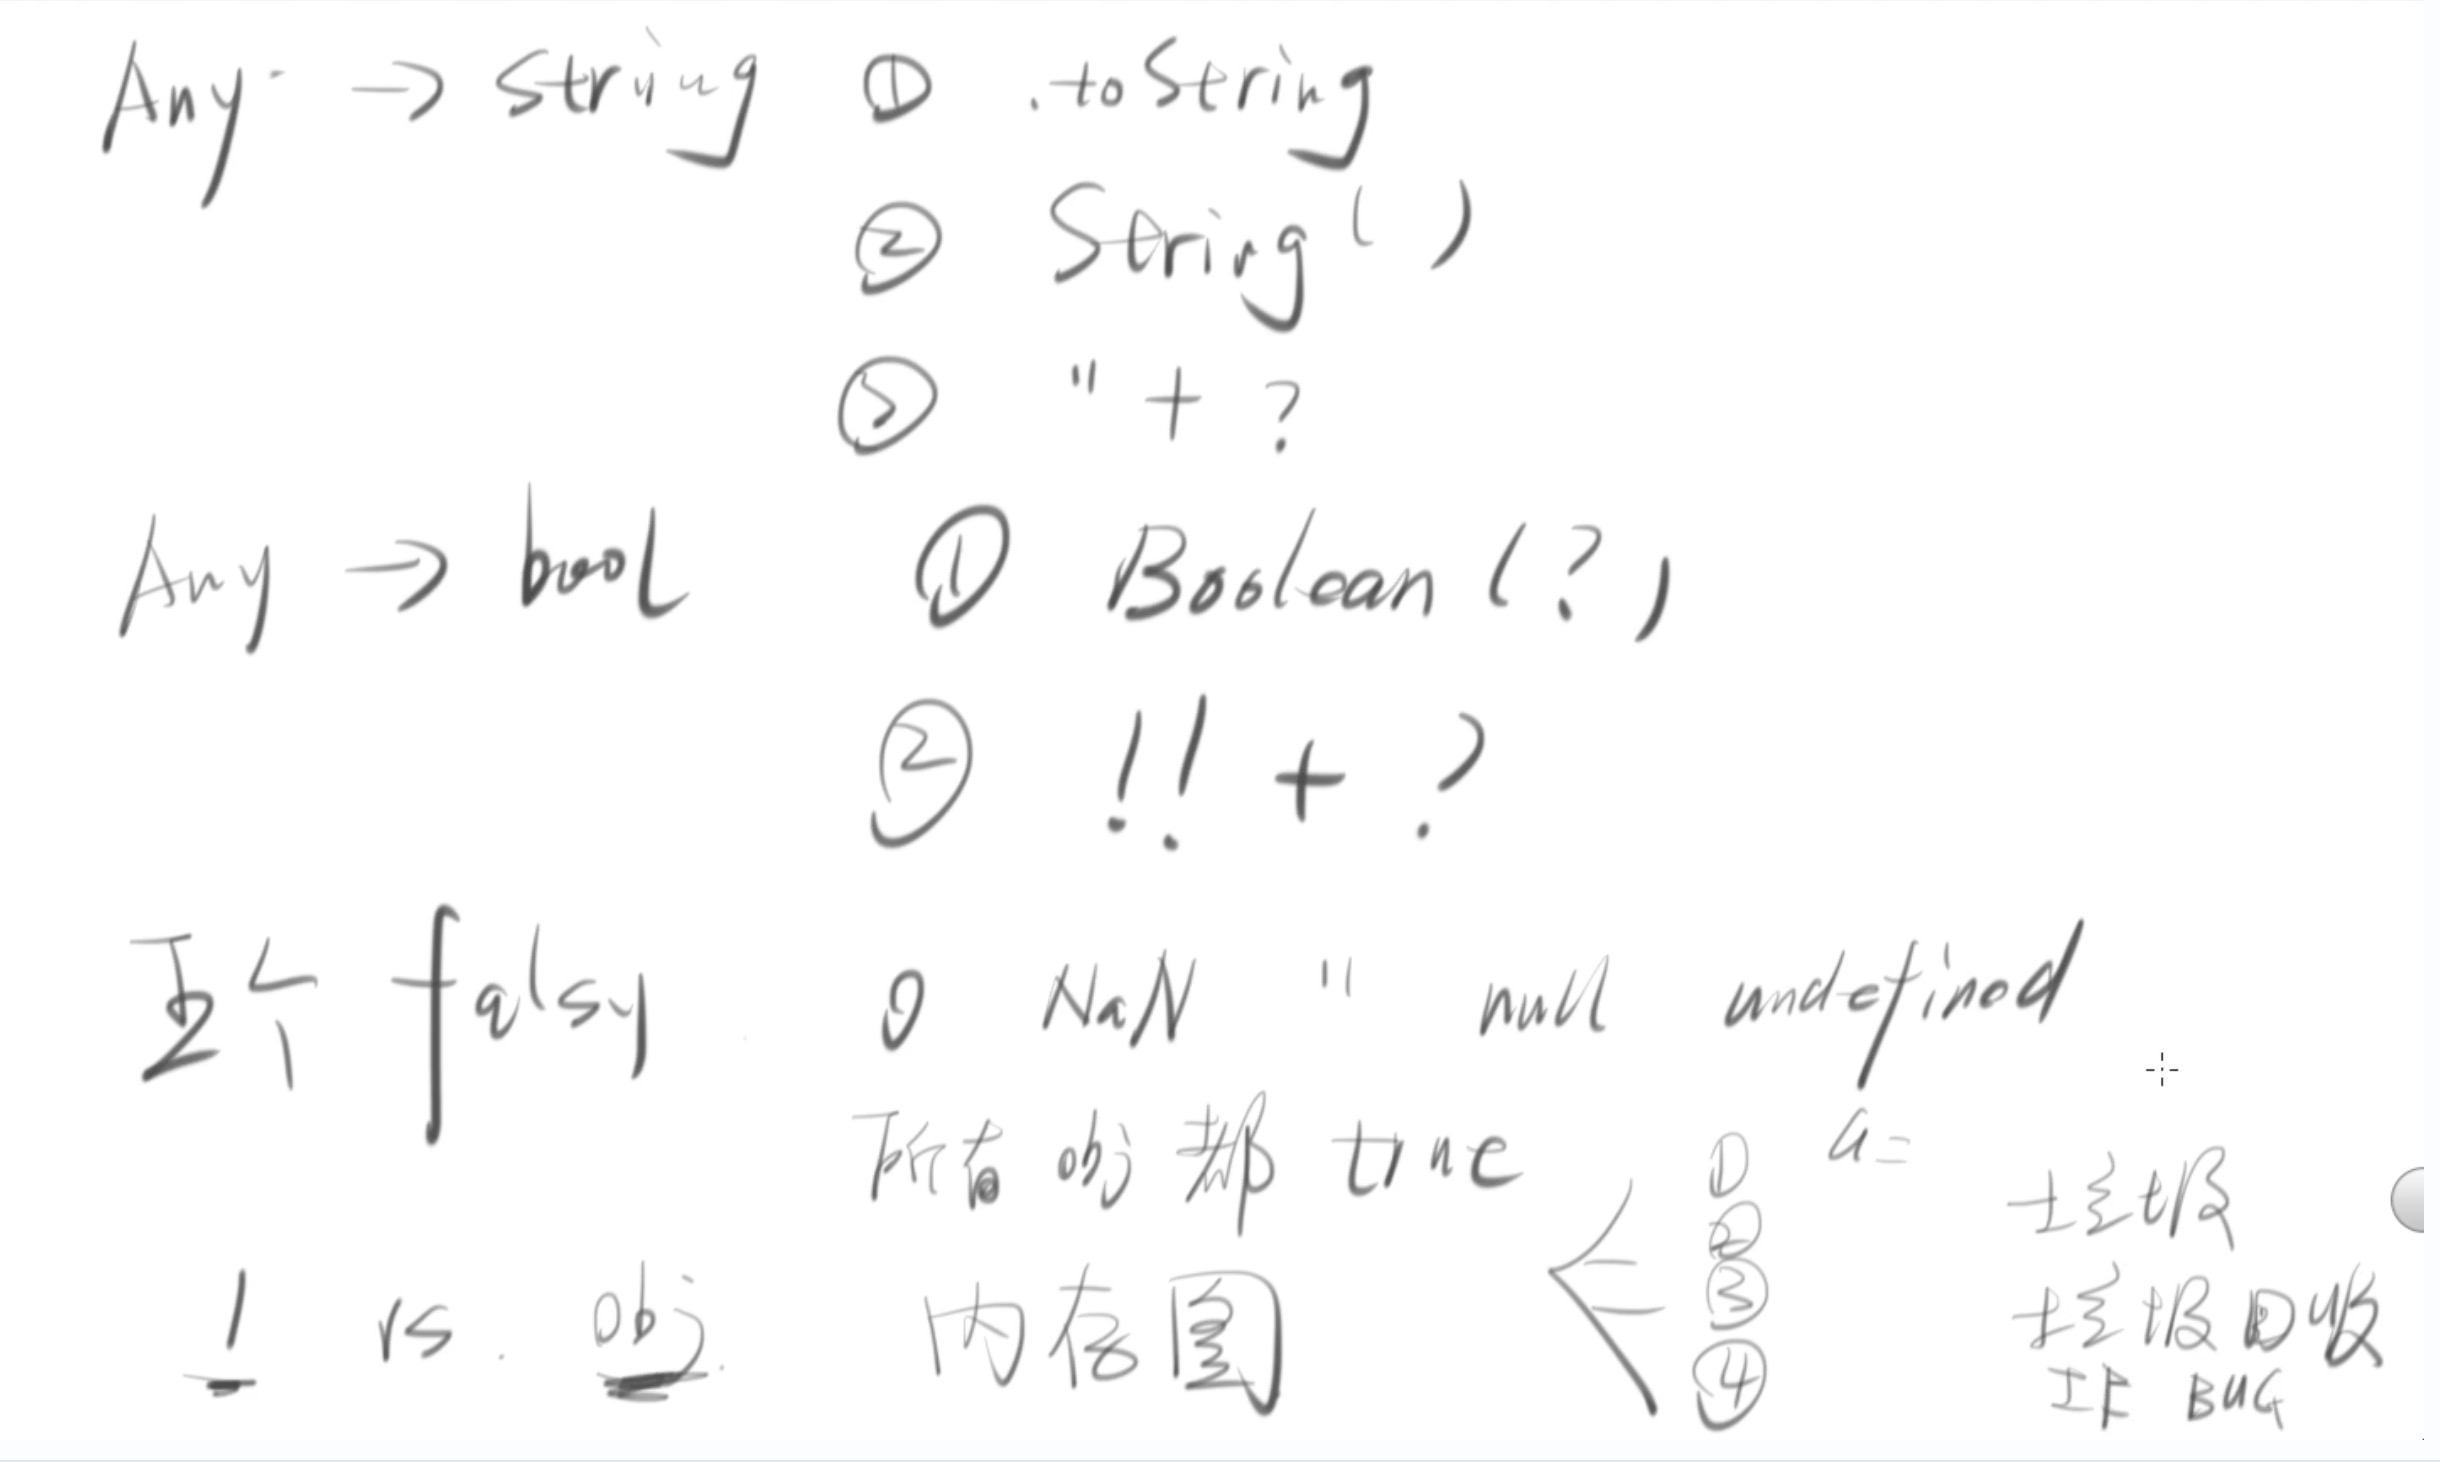 Any → string ① .toString
② String( )
③ '' + ?
Any → bool ① Boolean(?)
② !! + ?
五个 falsy 0 NaN '' null undefined
所有 obj 都 true
① a=
②
③
④
1 vs. obj. 内存图
垃圾
垃圾回收
IE BUG